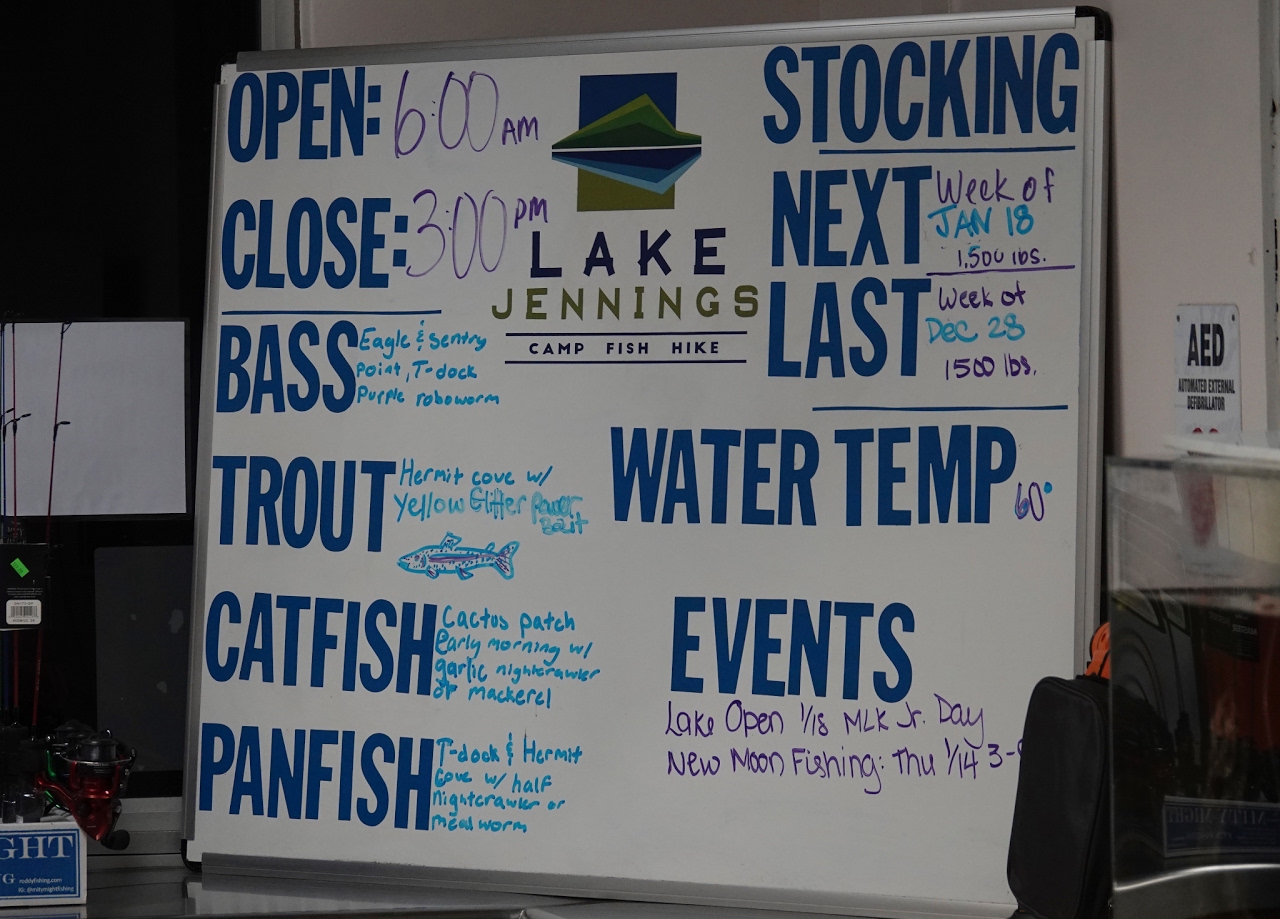 OPEN: 6:00 AM
CLOSE: 3:00 PM
BASS Eagle & Sentry
Point, T-dock
Purple roboworm
TROUT Hermit cove w/
Yellow Glitter Power
Bait
CATFISH Cactus patch
Early morning w/
garlic nightcrawler
or mackerel
PANFISH T-dock & Hermit
Cove w/ half
nightcrawler or
mealworm
LAKE
JENNINGS
CAMP FISH HIKE
STOCKING
NEXT Week of
JAN 18
1,500 lbs.
LAST Week of
Dec 28
1500 lbs.
WATER TEMP 60°
EVENTS
Lake Open 1/18 MLK Jr. Day
New Moon Fishing: Thu 1/14 3-
AED
AUTOMATED EXTERNAL
DEFIBRILLATOR
GHT
G roddyfishing.com
IG: @mitymightfishing